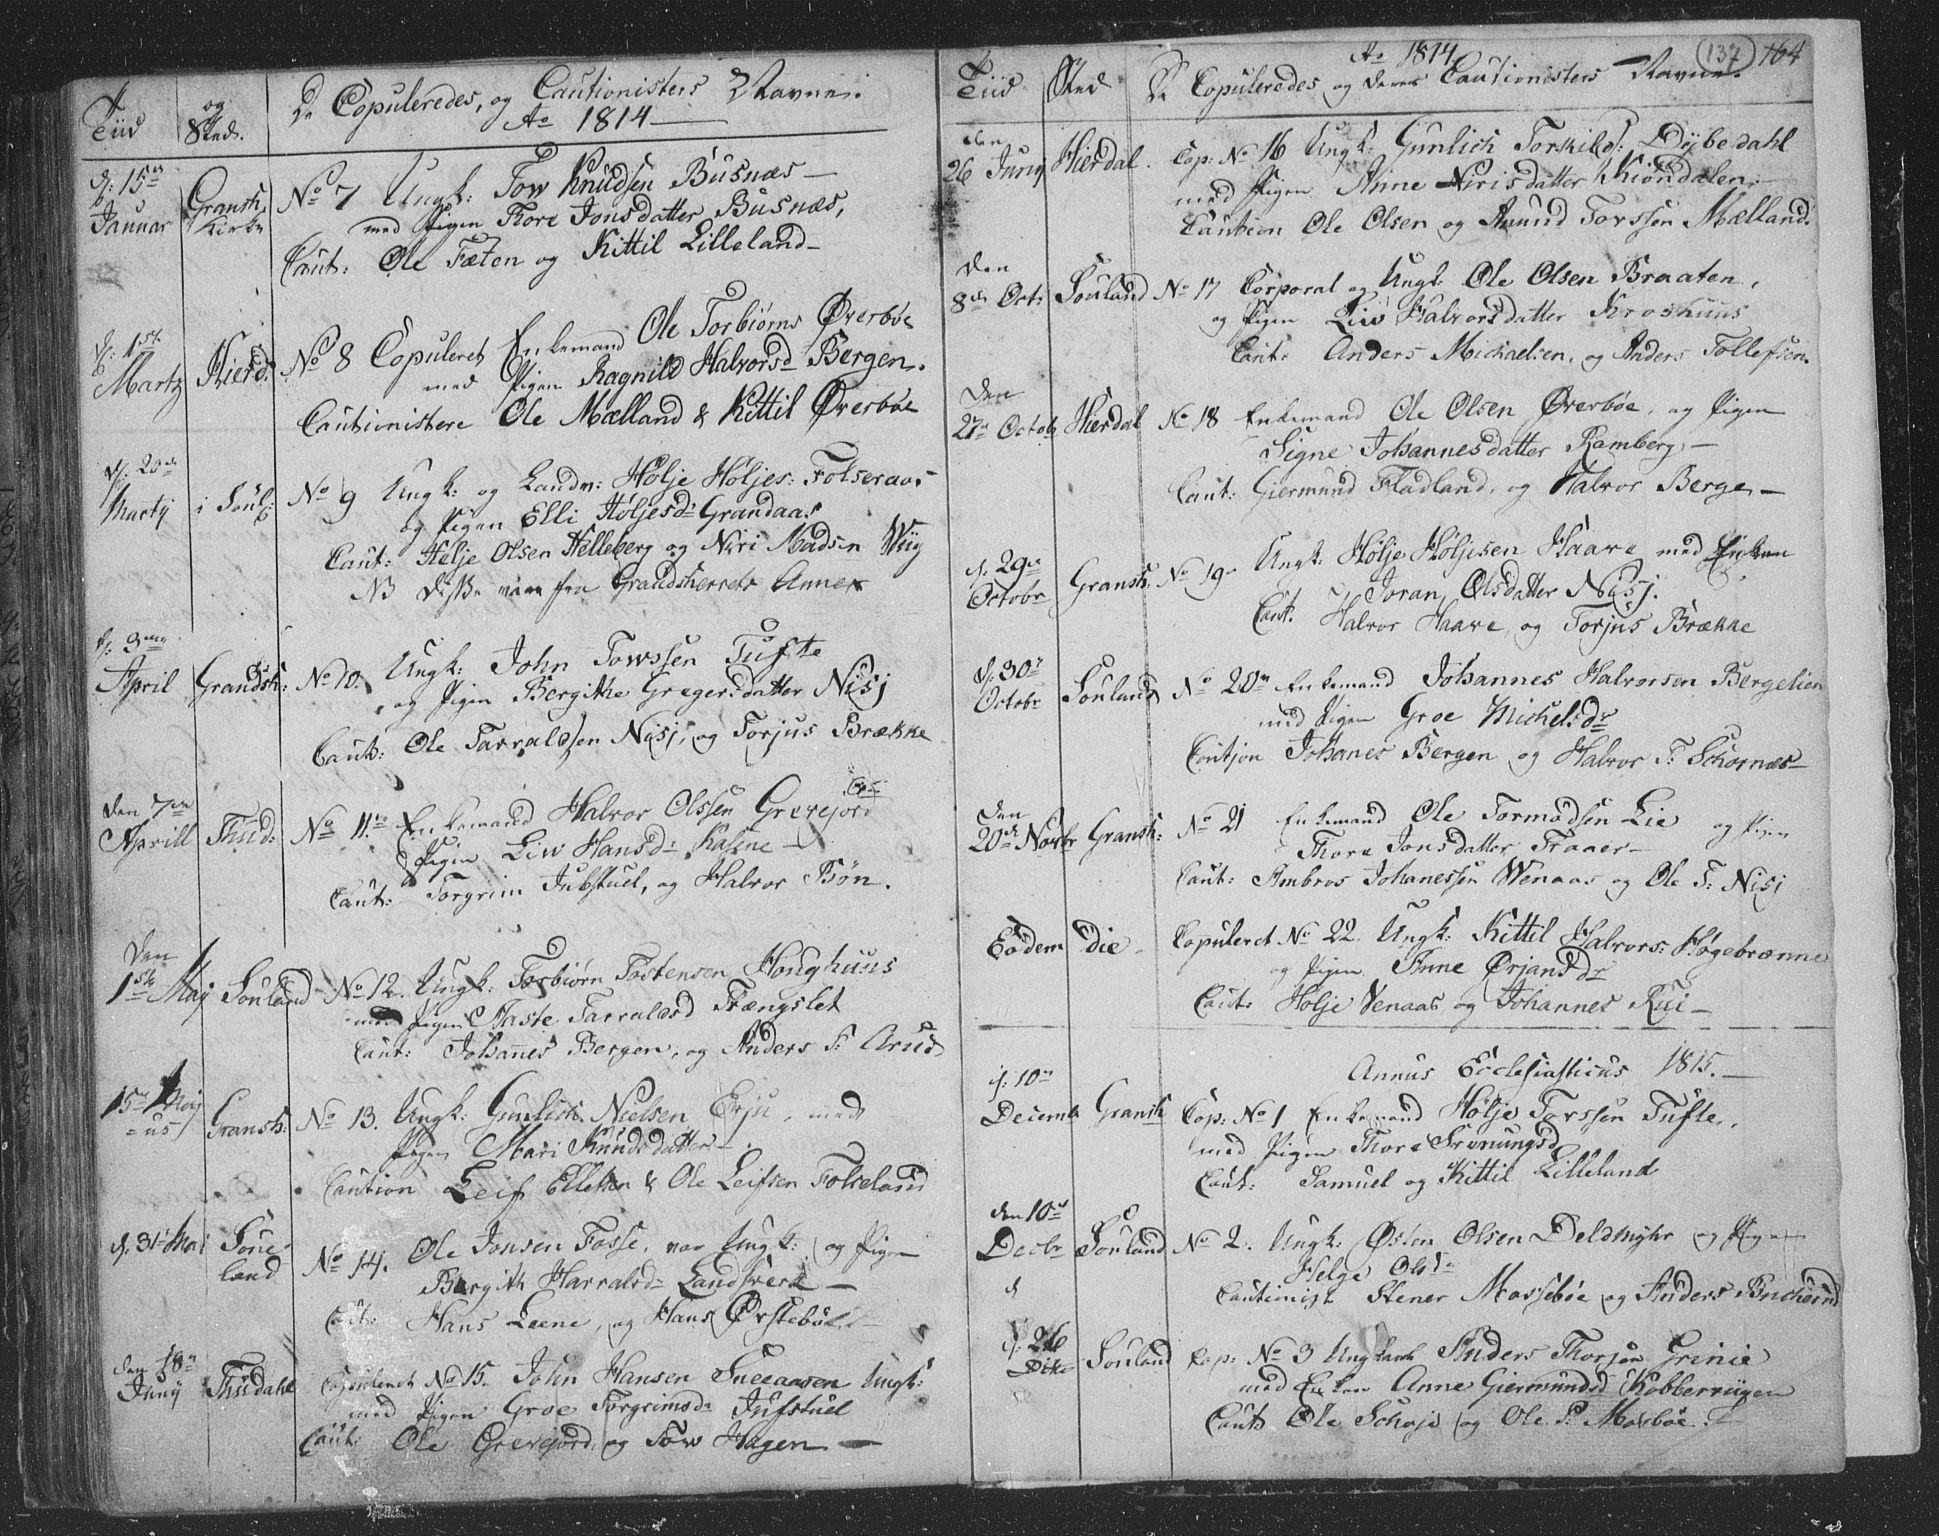 Tiid
og Sted.
De Copuleredes, og Cautionisters Navne.
Ao 1814
d: 15de Januar
Gransh. Kirke
No 7 Ungk: Tow Knudsen Busnæs
med Pigen Thore Jonsdatter Busnæs,
Caut: Ole Fæten og Kittil Lilleland
d: 1ste Martz
Hierd.
No 8 Copuleret Enkemand Ole Torbiørns Øverbøe
med Pigen Ragnild Halvorsd Bergen.
Cautionistere Ole Mælland & Kittil Øverbøe
d: 20de Martz
i Soul:
No 9 Ungk: og Landv: Hølje Høljes: Folseraas
og Pigen Elli Høljesd: Grandaas
Caut: Helje Olsen Helleberg og Niri Madsen Wiig
NB Disse vare fra Grandsherreds Annex
d: 3die April
Grandsh:
No 10. Ungk: John Towssen Tufte
og Pigen Bergithe Gregersdatter Nisj
Caut: Ole Tarraldsen Nisj, og Torjus Brække
den 7de Aprill
Thud:
No 11. Enkemand Halvor Olssen Grevejord
Pigen Liw Hansd: Kasine
Caut: Torgrim Jubstuel, og Halvor Bøn.
den 1ste Maj
Souland
No 12. Ungk: Torbiørn Tostensen Houghuus
med Pigen Aaste Tarralsd Trængslet
Caut: Johannes Bergen, og Anders S: Aruds
15de Maj
Gransh:
No 13. Ungk: Gunlich Nielsen Erju, med
Pigen Mari Knudsdatter
Caution Leif Ellefsen & Ole Leifsen Folseland
d. 31 Mai
Soueland
No 14. Ole Jonsen Fosse, var Ungk: og Pigen
Bergith Harralsd: Landsverk
Caut: Hans Leene, og Hans Ørstebøl
den 18de Juny
Thudahl
Copuleret No 15. John Hansen Sneeaasen Ungk:
med Pigen Groe Torgrimsd: Jufstuel
Caut: Ole Grevejord, og Tow Hagen
137 164
Tiid
Sted
Ao 1814
De Copuleredes og deres Cautionisters Navne.
den 26 Juny
Hierdal.
Cop: No 16 Ungk: Gunlich Torkilds: Dybedahl
med Pigen Anne Nirisdatter Kiøndalen
Caution Ole Olsen og Amund Torssen Mælland.
den 8de Oct:
Souland
No 17 Corporal og Ungk: Ole Olsen Braaten,
og Pigen Liw Halvorsdatter Kroshuus
Caut: Anders Michaelsen, og Anders Tollefsen
den 27de Octob
Hierdal
No 18 Enkemand Ole Olsen Øverbøe, og Pigen
Signe Johannesdatter Ramberg
Caut: Giermund Fladland, og Halvor Berge
d. 29de Octobr
Gransh.
No 19 Ungk: Hølje Høljesen Haave med Enken
Joran Olsdatter Nisj.
Caut. Halvor Haave og Torjus Brække
d: 30te Octobr
Souland
No 20 Enkemand Johannes Halvorsen Bergelien
med Pigen Groe Michelsdr
Contjon Johanes Bergen og Halvor T. Schornæs
den 20de Novbr
Gransh:
No 21 Enkemand Ole Tormodsen Lie og Pigen
Thore Jonsdatter Traaer
Caut: Ambros Johanessen Wenaas og Ole T: Nisj
Eodem die
Copuleret No 22. Ungk: Kittil Halvors: Høgebrænne
og Pigen Anne Ørjansdr
Caut: Holje Venaas og Johannes Rui
Annus Ecclesiasticus 1815.
d: 10de Decemb
Gransh
Cop: No 1 Enkemand Hølje Torssen Tufte,
med Pigen Thore Grønungsd
Caut: Samuel og Kittil Lilleland
den 10de Decbr
Souland
No 2. Ungk: Østen Olsen Deldmyhr og Pigen
Helge Olsd:
Cautionist Stener Mossebøe og Anders
d: 26
Souland
Cop: No 3 Ungkarl Anders Thorsen Grinie
med Enken Anne Giermundsd Kobberviigen
Caut: Ole Schoje og Ole P: Mosbøe.